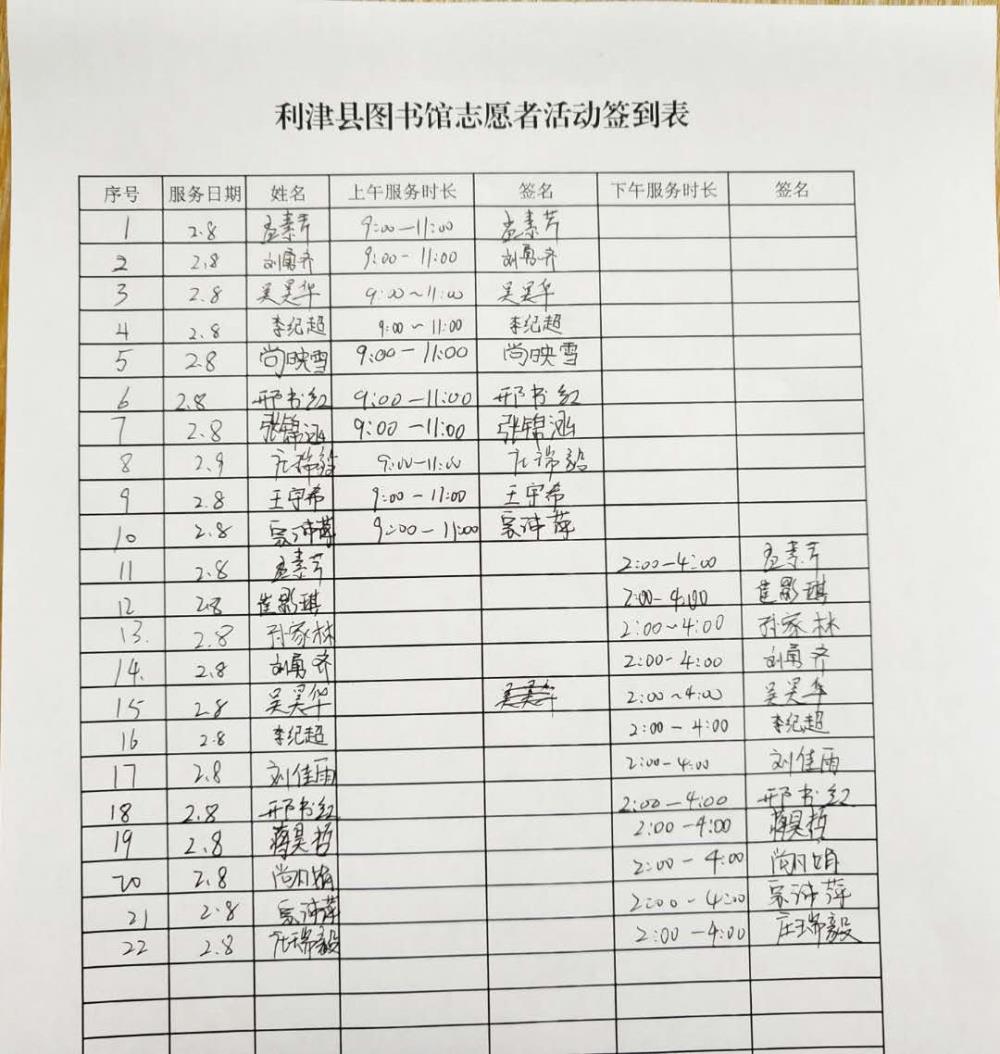 利津县图书馆志愿者活动签到表
序号 服务日期 姓名 上午服务时长 签名 下午服务时长 签名
1 2.8 孟素芳 9:00—11:00 孟素芳
2 2.8 刘勇齐 9:00-11:00 刘勇齐
3 2.8 吴昊华 9:00~11:00 吴昊华
4 2.8 李纪超 9:00~11:00 李纪超
5 2.8 尚映雪 9:00-11:00 尚映雪
6 2.8 邢书红 9:00-11:00 邢书红
7 2.8 张锦涵 9:00-11:00 张锦涵
8 2.9 庄瑞毅 9:00-11:00 庄瑞毅
9 2.8 王宇希 9:00-11:00 王宇希
10 2.8 9:00-11:00
11 2.8 孟素芳 2:00-4:00 孟素芳
12 2.8 崔影琪 2:00-4:00 崔影琪
13. 2.8 孙家林 2:00~4:00 孙家林
14. 2.8 刘勇齐 2:00-4:00 刘勇齐
15 2.8 吴昊华 2:00~4:00 吴昊华
16 2.8 李纪超 2:00-4:00 李纪超
17 2.8 刘佳雨 2:00-4:00 刘佳雨
18 2.8 邢书红 2:00-4:00 邢书红
19 2.8 蒋昊哲 2:00-4:00 蒋昊哲
20 2.8 2:00-4:00
21 2.8 2:00-4:00
22 2.8 庄瑞毅 2:00-4:00 庄瑞毅